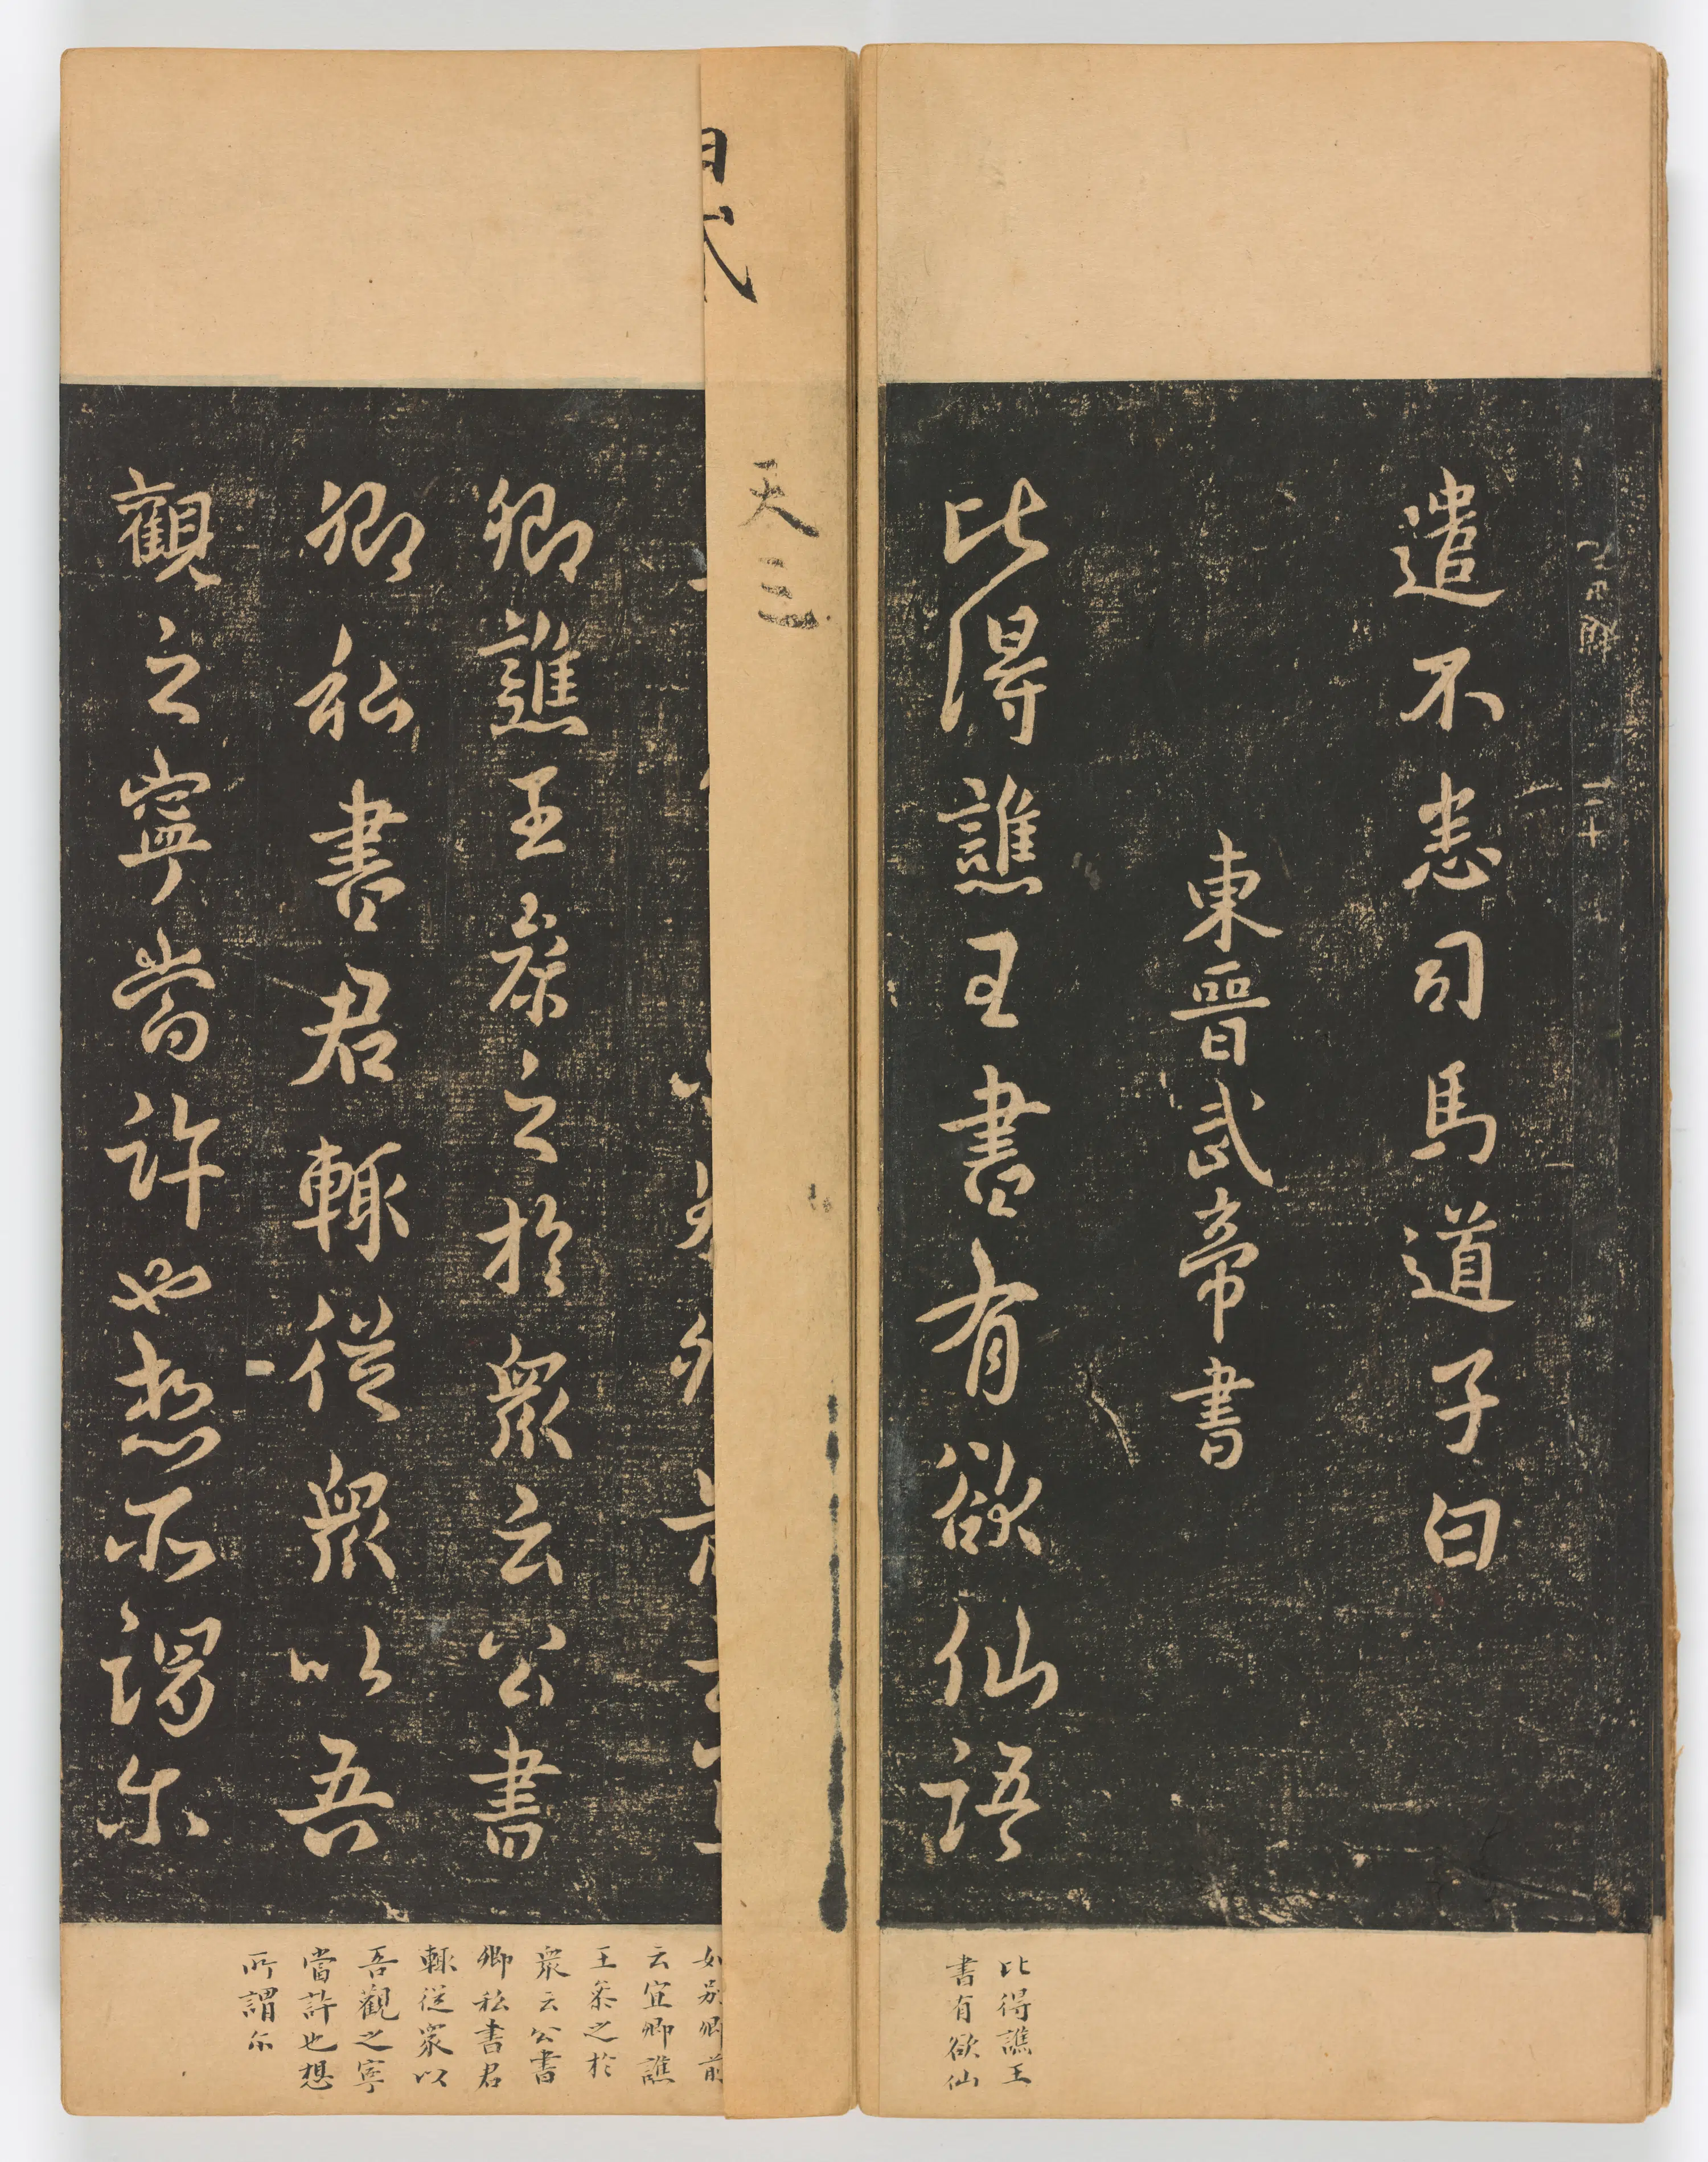 遣不恙司馬道子白
東晉武帝書
比得譙王書有欲仙語
比得譙王
書有欲仙
天三
卿譙王察之於衆云公書
卿私書君輒從衆以吾
觀之寧當許也想所謂尒
云宜卿譙
王察之於
衆云公書
卿私書君
輒從衆以
吾觀之寧
當許也想
所謂尒